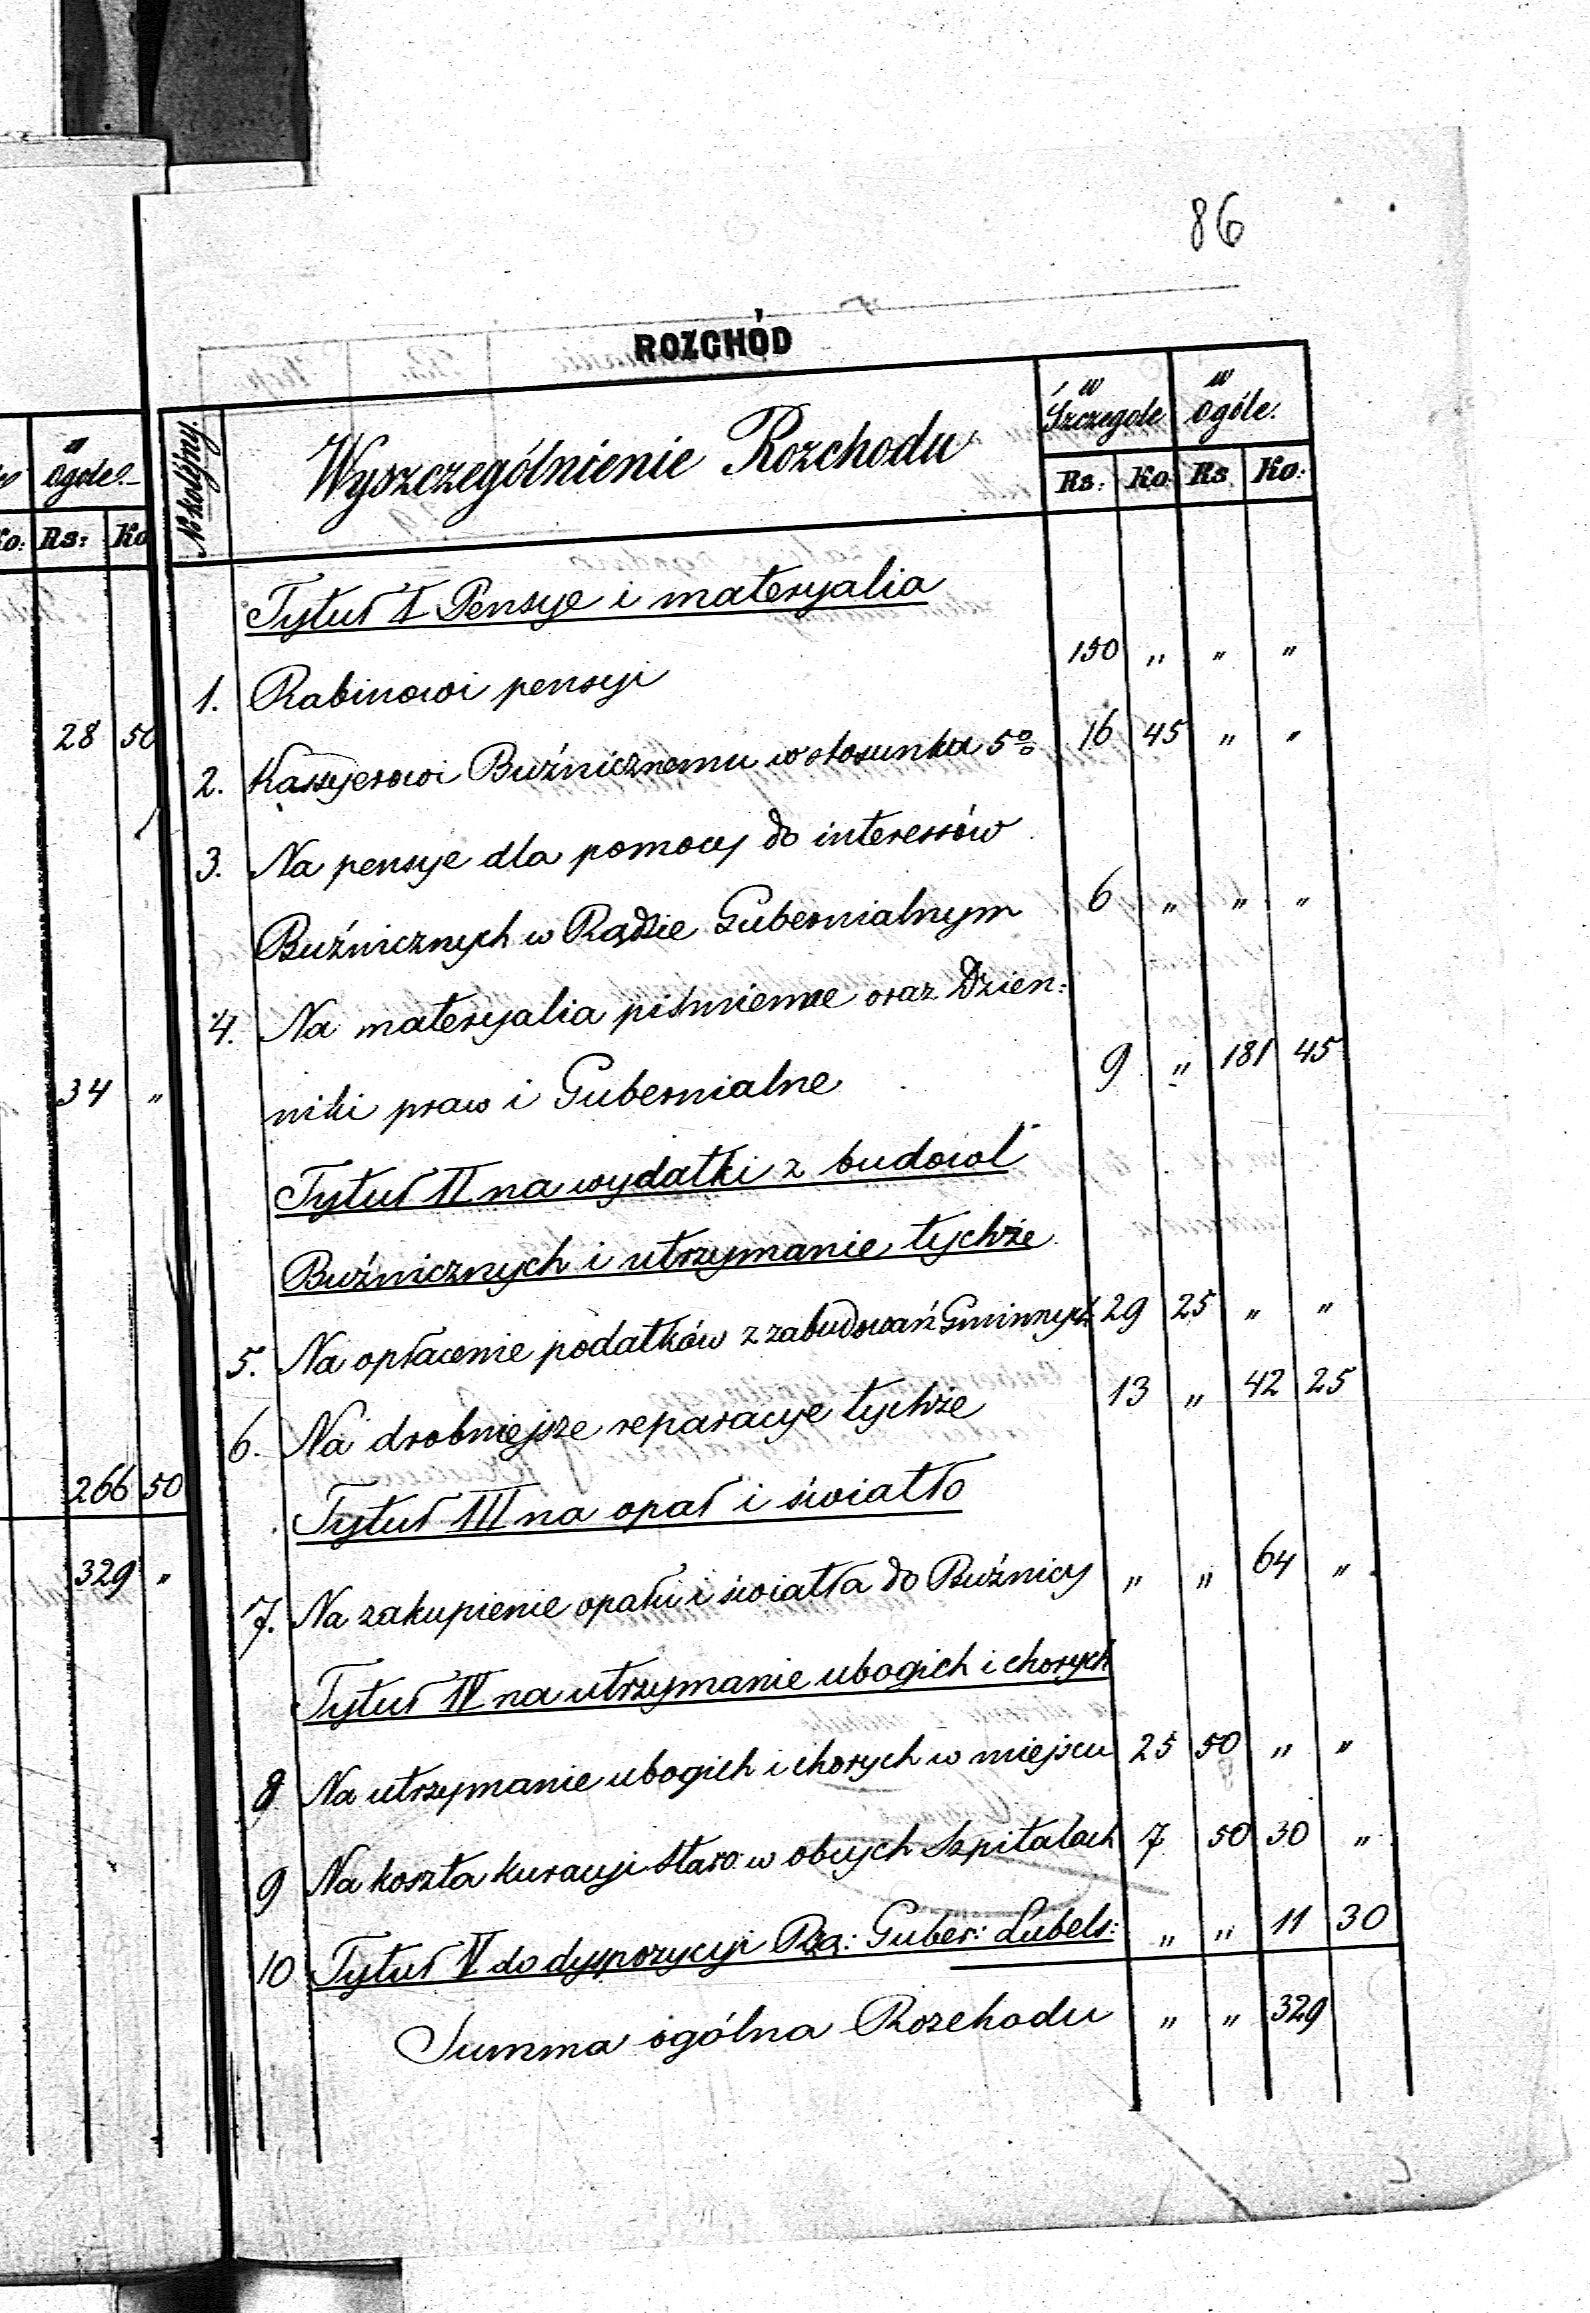 86
ROZCHÓD
No kolejny. Wyszczególnienie Rozchodu w Szczegole w ogóle.
Rs: Ko: Rs Ko:
Tytuł I Pensye i materyalia
1. Rabinowi pensyi 150 „ „ „
2. Kassyerowi Buźnicznemu w stosunku 5% 16 45 „ „
3. Na pensye dla pomocy do interessów
Buźnicznych w Rządzie Gubernialnym 6 „ „ „
4. Na materyalia piśmienne oraz Dzien:
niki praw i Gubernialne 9 „ 181 45
Tytuł II na wydatki z budowl
Buźnicznych i utrzymanie tychże
5. Na opłacenie podatków z zabudowań Gminnych 29 25 „ „
6. Na drobniejsze reparacye tychże 13 „ 42 25
Tytuł III na opał i światło
7. Na zakupienie opału i światła do Buźnicy „ „ 64 „
Tytuł IV na utrzymanie ubogich i chorych
8 Na utrzymanie ubogich i chorych w miejscu 25 50 „ „
9 Na koszta kuracyi Staro: w obcych Szpitalach 7 50 30 „
10 Tytuł V do dyspozycyi Rzą: Guber: Lubels: „ „ 11 30
Summa ogólna Rozchodu „ „ 329
ogole.
Ko: Rs: Ko
28 50
34 „
266 50
329 „